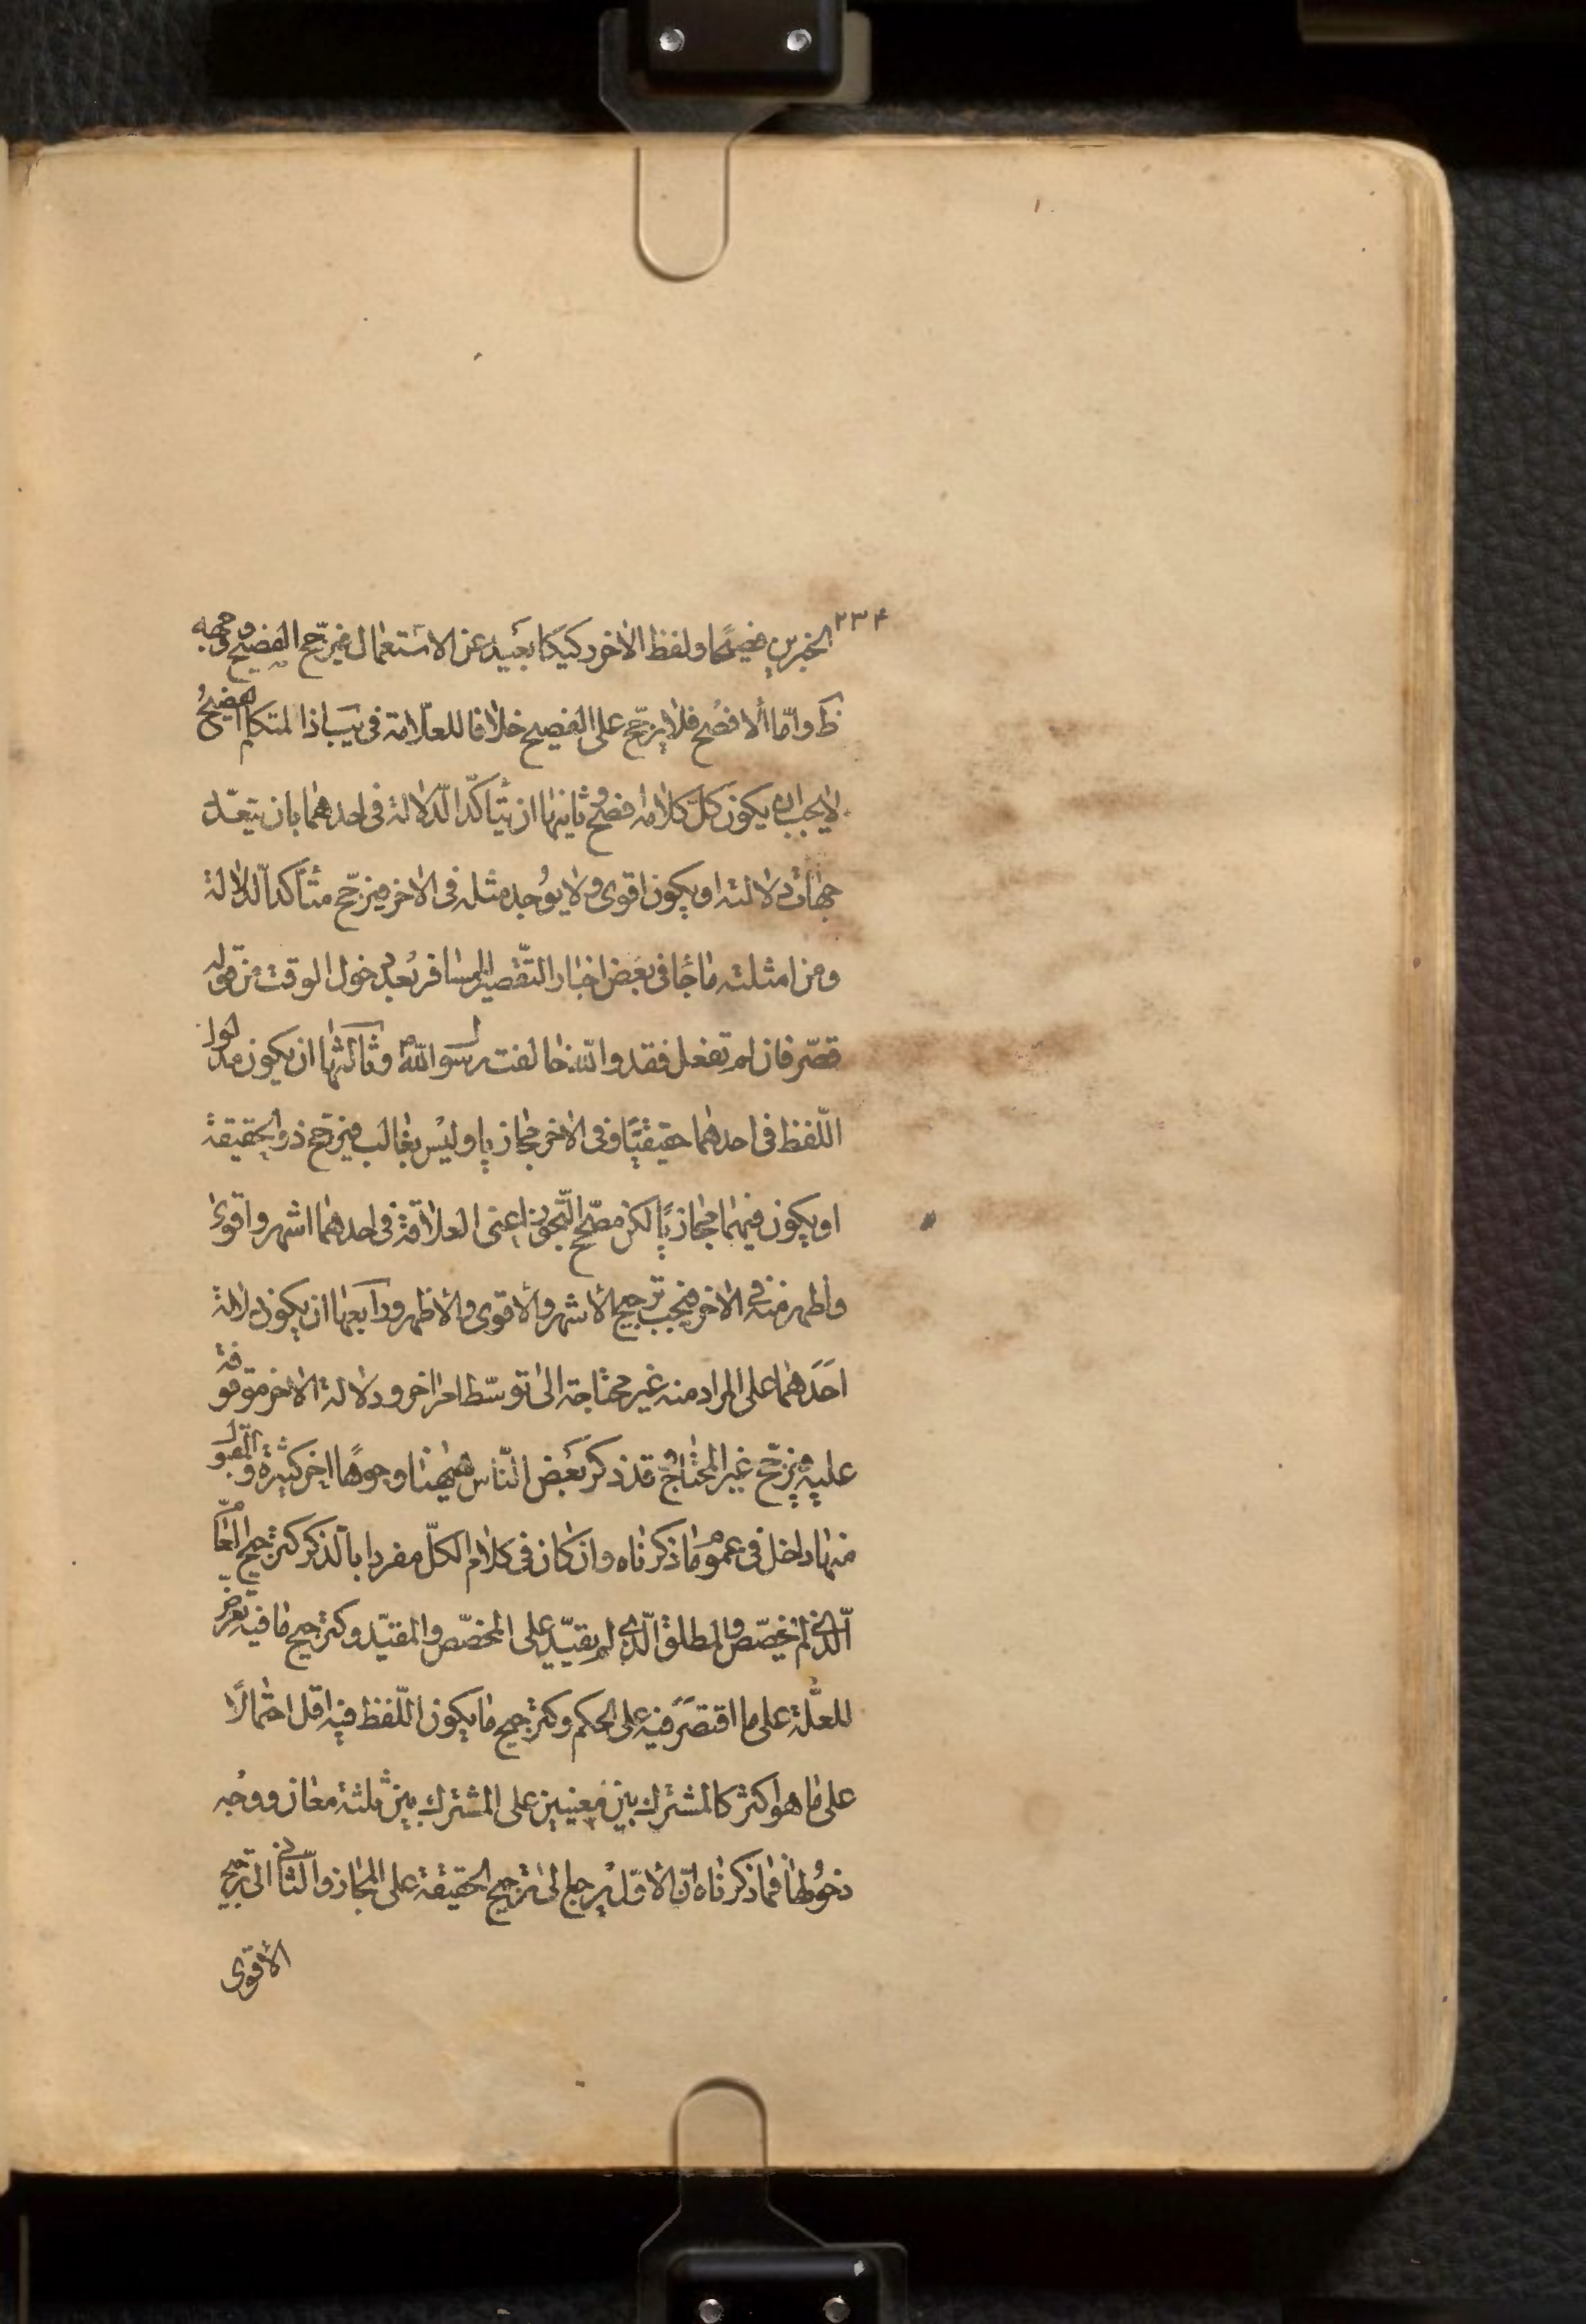 ٢٣٤
الخبرين فصيحا ولفظ الاخر ركيكا بعيد عن الاستعمال فيرجح الفصيح ووجهه
ظ واما الافصح فلا يرجح على الفصيح خلافا للعلامة في يب اذ المتكلم الفصيح
لا يجب ان يكون كل كلامه افصح وثانيها ان يتاكد الدلالة في احدهما بان يتعدد
جهات دلالته او يكون اقوى ولا يوجد مثله في الاخر فيرجح متاكد الدلالة
ومن امثلته ما جا في بعض اخبار التقصير للمسافر بعد دخول الوقت من قوله
قصر فان لم تفعل فقد والله خالفت رسول الله ص وثالثها ان يكون مدلول
اللفظ في احدهما حقيقيا وفي الاخر مجازيا وليس بغالب فيرجح ذو الحقيقة
او يكون فيهما مجازيا لكن مصحح التجوز اعني العلاقة في احدهما اشهر واقوى
واظهر منه في الاخر فيجب ترجيح الاشهر والاقوى والاظهر ورابعها ان يكون دلالة
احدهما على المراد منه غير محتاجة الى توسط امر اخر ودلالة الاخر موقوفة
عليه فيرجح غير المحتاج وقد ذكر بعض الناس هيهنا وجوها اخر كثيرة والمقبول
منها داخل في عموم ما ذكرناه وان كان في كلام الكل مفردا بالذكر كترجيح العام
الذي لم يخصص والمطلق الذي لم يقيد على المخصص والمقيد وكترجيح ما فيه تعرض
للعلة على ما اقتصر فيه على الحكم وكترجيح ما يكون اللفظ فيه اقل احتمالا
على ما هو اكثر كالمشترك بين معنيين على المشترك بين ثلثة معان ووجه
دخولها فيما ذكرناه ان الاول يرجع الى ترجيح الحقيقة على المجاز والثاني الى ترجيح
الاقوى